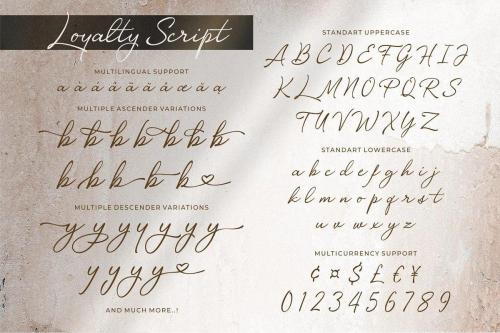 Loyalty Script
MULTILINGUAL SUPPORT
a à á â ã ä å æ ā ą
MULTIPLE ASCENDER VARIATIONS
b b b b b b b
b b b b b
MULTIPLE DESCENDER VARIATIONS
y y y y y y y
y y y y
AND MUCH MORE..!
STANDART UPPERCASE
A B C D E F G H I J
K L M N O P Q R S
T U V W X Y Z
STANDART LOWERCASE
a b c d e f g h i j
k l m n o p q r s t
u v w x y z
MULTICURRENCY SUPPORT
¢ ¤ $ £ € ¥
0 1 2 3 4 5 6 7 8 9